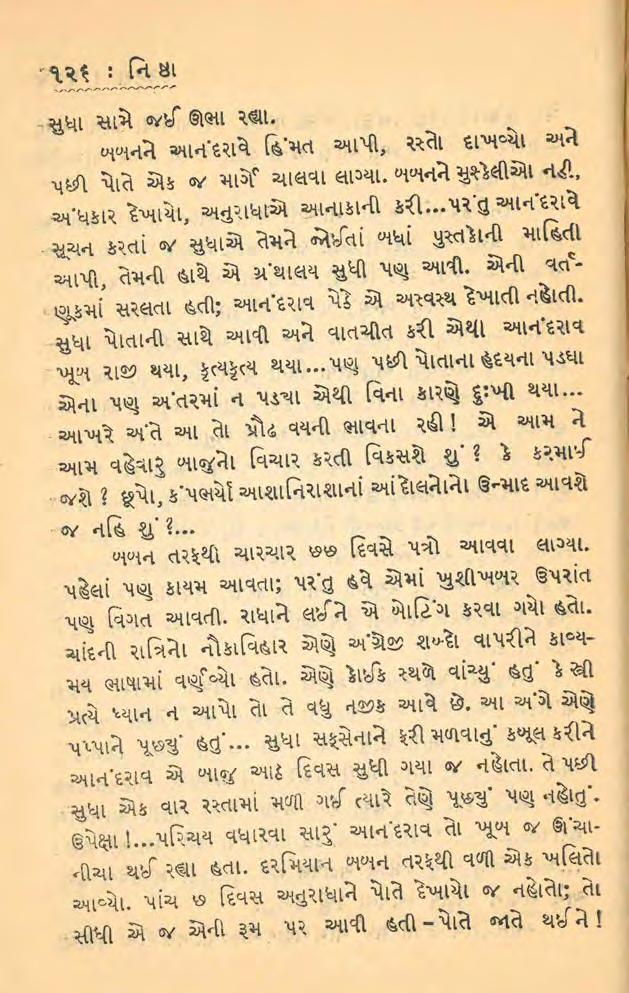 ૧૨૬ : નિષ્ઠા
સુધા સામે જઈ ઊભા રહ્યા.
બબનને આનંદરાવે હિંમત આપી, રસ્તો દાખવ્યો અને
પછી પોતે એક જ માર્ગે ચાલવા લાગ્યા. બબનને મુશ્કેલીઓ નડી,
અંધકાર દેખાયો, અનુરાધાએ આનાકાની કરી...પરંતુ આનંદરાવે
સૂચન કરતાં જ સુધાએ તેમને જોઈતાં બધાં પુસ્તકોની માહિતી
આપી, તેમની હાથે એ ગ્રંથાલય સુધી પણ આવી. એની વર્ત-
ણૂકમાં સરલતા હતી; આનંદરાવ પેઠે એ અસ્વસ્થ દેખાતી નહોતી.
સુધા પોતાની સાથે આવી અને વાતચીત કરી એથી આનંદરાવ
ખૂબ રાજી થયા, કૃત્યકૃત્ય થયા...પણ પછી પોતાના હૃદયના પડઘા
એના પણ અંતરમાં ન પડ્યા એથી વિના કારણે દુઃખી થયા...
આખરે અંતે આ તો પ્રૌઢ વયની ભાવના રહી! એ આમ ને
આમ વહેવારુ બાજુનો વિચાર કરતી વિકસશે શું? કે કરમાઈ
જશે? છૂપો, કંપભર્યો આશાનિરાશાનાં આંદોલનોનો ઉન્માદ આવશે
જ નહિ શું?...
બબન તરફથી ચારચાર છછ દિવસે પત્રો આવવા લાગ્યા.
પહેલાં પણ કાયમ આવતા; પરંતુ હવે એમાં ખુશીખબર ઉપરાંત
પણ વિગત આવતી. રાધાને લઈને એ બોટિંગ કરવા ગયો હતો.
ચાંદની રાત્રિનો નૌકાવિહાર એણે અંગ્રેજી શબ્દો વાપરીને કાવ્ય-
મય ભાષામાં વર્ણવ્યો હતો. એણે કોઈક સ્થળે વાંચ્યું હતું કે સ્ત્રી
પ્રત્યે ધ્યાન ન આપો તો તે વધુ નજીક આવે છે. આ અંગે એણે
પપ્પાને પૂછ્યું હતું... સુધા સક્સેનાને ફરી મળવાનું કબૂલ કરીને
આનંદરાવ એ બાજુ આઠ દિવસ સુધી ગયા જ નહોતા. તે પછી
સુધા એક વાર રસ્તામાં મળી ગઈ ત્યારે તેણે પૂછ્યું પણ નહોતું.
ઉપેક્ષા!...પરિચય વધારવા સારું આનંદરાવ તો ખૂબ જ ઊંચા-
નીચા થઈ રહ્યા હતા. દરમિયાન બબન તરફથી વળી એક ખલિતો
આવ્યો. પાંચ છ દિવસ અનુરાધાને પોતે દેખાયો જ નહોતો; તો
સીધી એ જ એની રૂમ પર આવી હતી – પોતે જાતે થઈને!